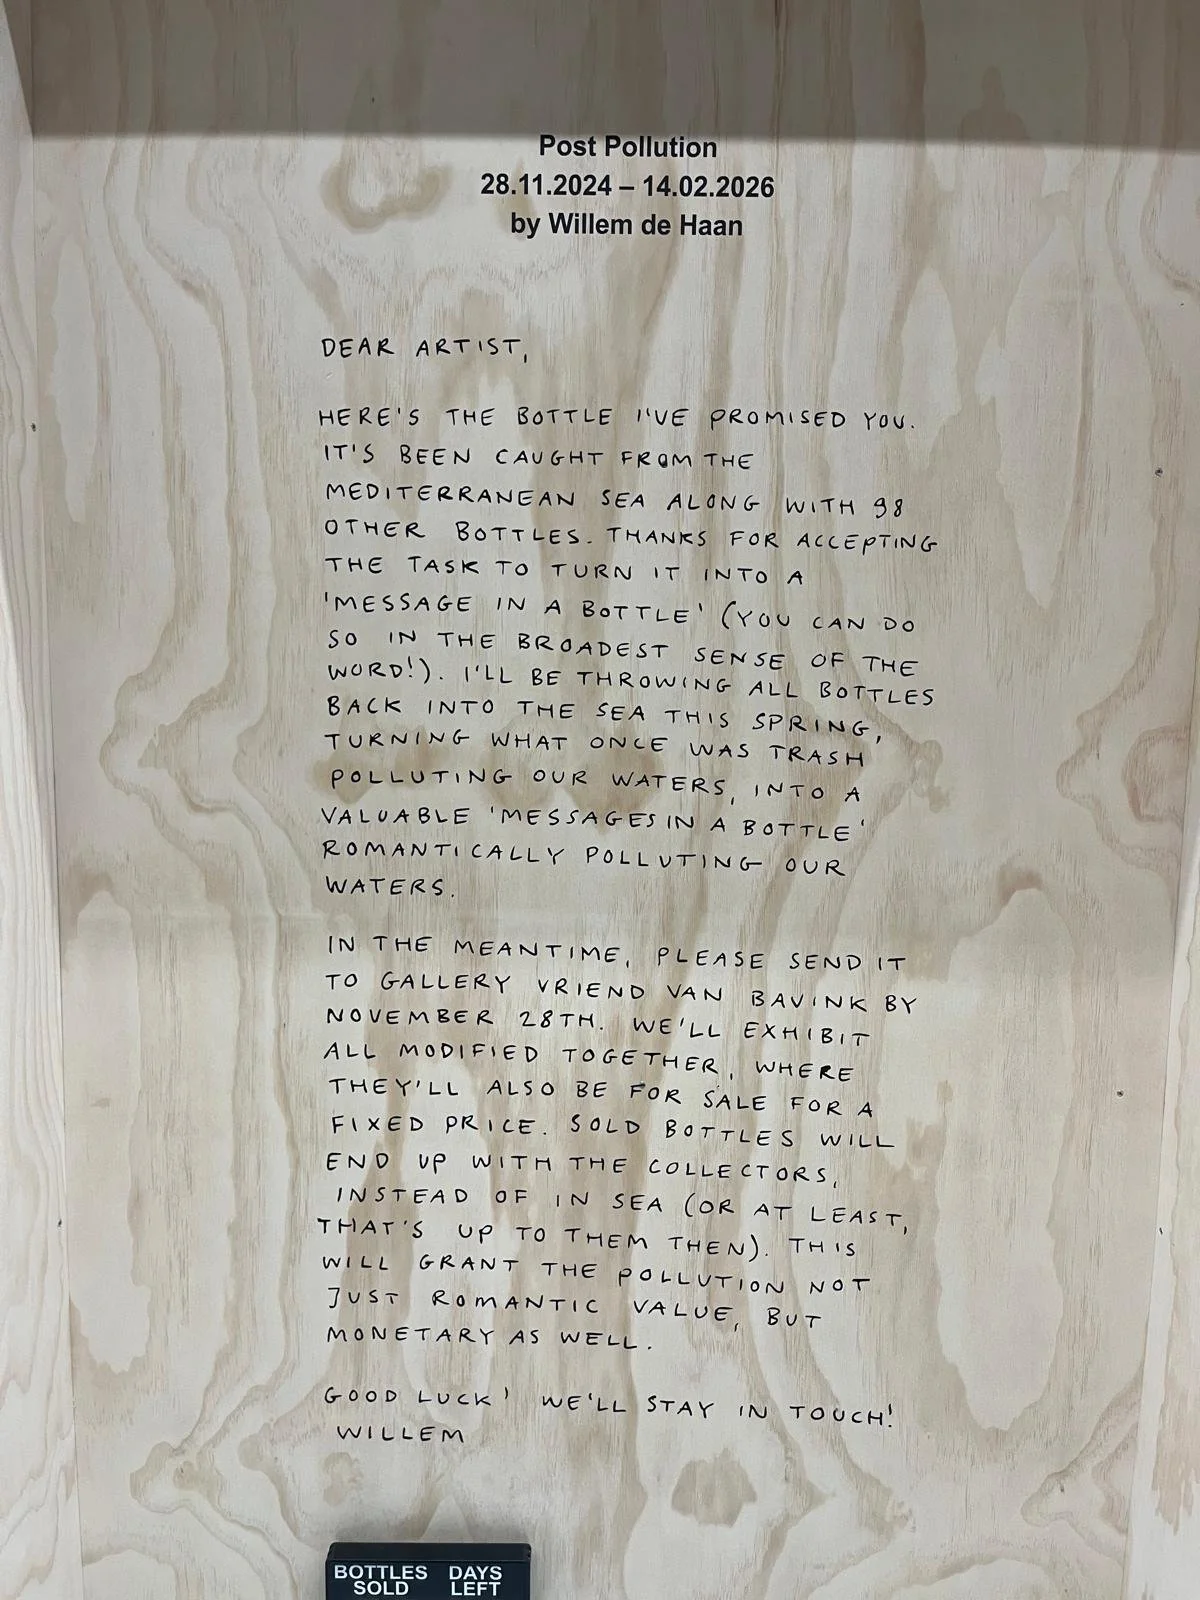 Post Pollution
28.11.2024 – 14.02.2026
by Willem de Haan
DEAR ARTIST,
HERE'S THE BOTTLE I'VE PROMISED YOU.
IT'S BEEN CAUGHT FROM THE
MEDITERRANEAN SEA ALONG WITH 98
OTHER BOTTLES. THANKS FOR ACCEPTING
THE TASK TO TURN IT INTO A
'MESSAGE IN A BOTTLE' (YOU CAN DO
SO IN THE BROADEST SENSE OF THE
WORD!). I'LL BE THROWING ALL BOTTLES
BACK INTO THE SEA THIS SPRING,
TURNING WHAT ONCE WAS TRASH
POLLUTING OUR WATERS, INTO A
VALUABLE 'MESSAGES IN A BOTTLE'
ROMANTICALLY POLLUTING OUR
WATERS.
IN THE MEANTIME, PLEASE SEND IT
TO GALLERY VRIEND VAN BAVINK BY
NOVEMBER 28TH. WE'LL EXHIBIT
ALL MODIFIED TOGETHER, WHERE
THEY'LL ALSO BE FOR SALE FOR A
FIXED PRICE. SOLD BOTTLES WILL
END UP WITH THE COLLECTORS,
INSTEAD OF IN SEA (OR AT LEAST,
THAT'S UP TO THEM THEN). THIS
WILL GRANT THE POLLUTION NOT
JUST ROMANTIC VALUE, BUT
MONETARY AS WELL.
GOOD LUCK! WE'LL STAY IN TOUCH!
WILLEM
BOTTLES DAYS
SOLD LEFT